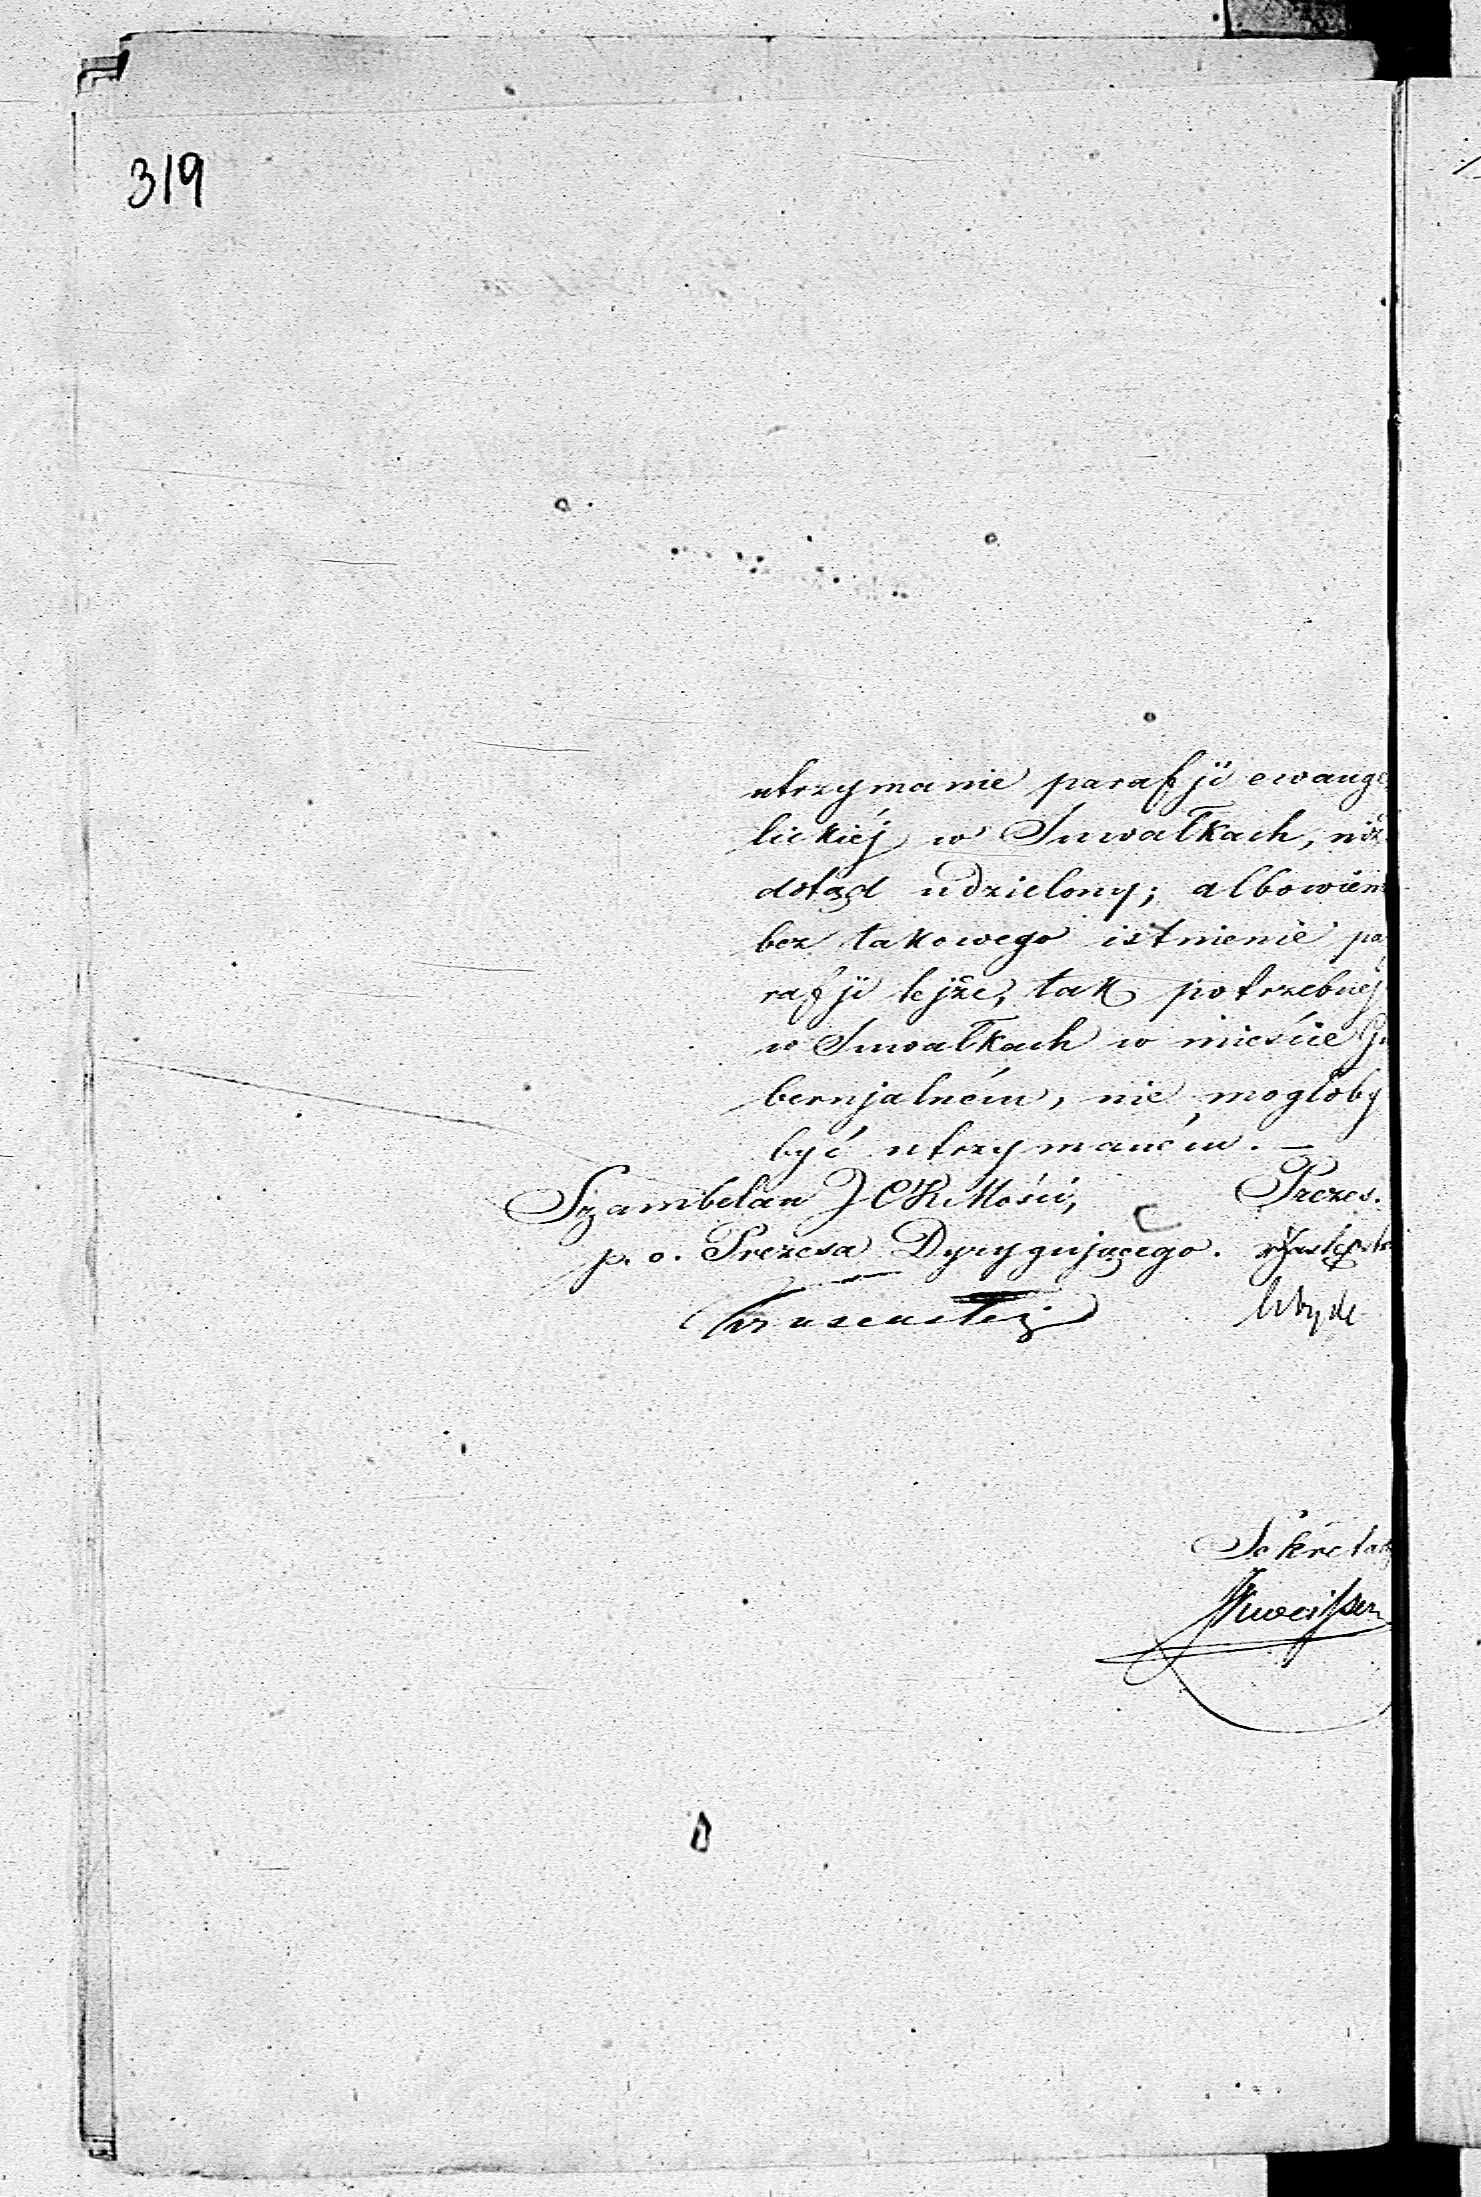 319
utrzymanie parafji ewange
lickiéj w Suwałkach, niż
dotąd udzielony; albowiem
bez takowego istnienie pa
rafji tejże, tak potrzebnej
w Suwałkach w mieście Gu
bernjalném, nie mogłoby
być utrzymaném. —
Szambelan J C K Mości, Prezes.
p. o. Prezesa Dyrygującego.
Sekretarz